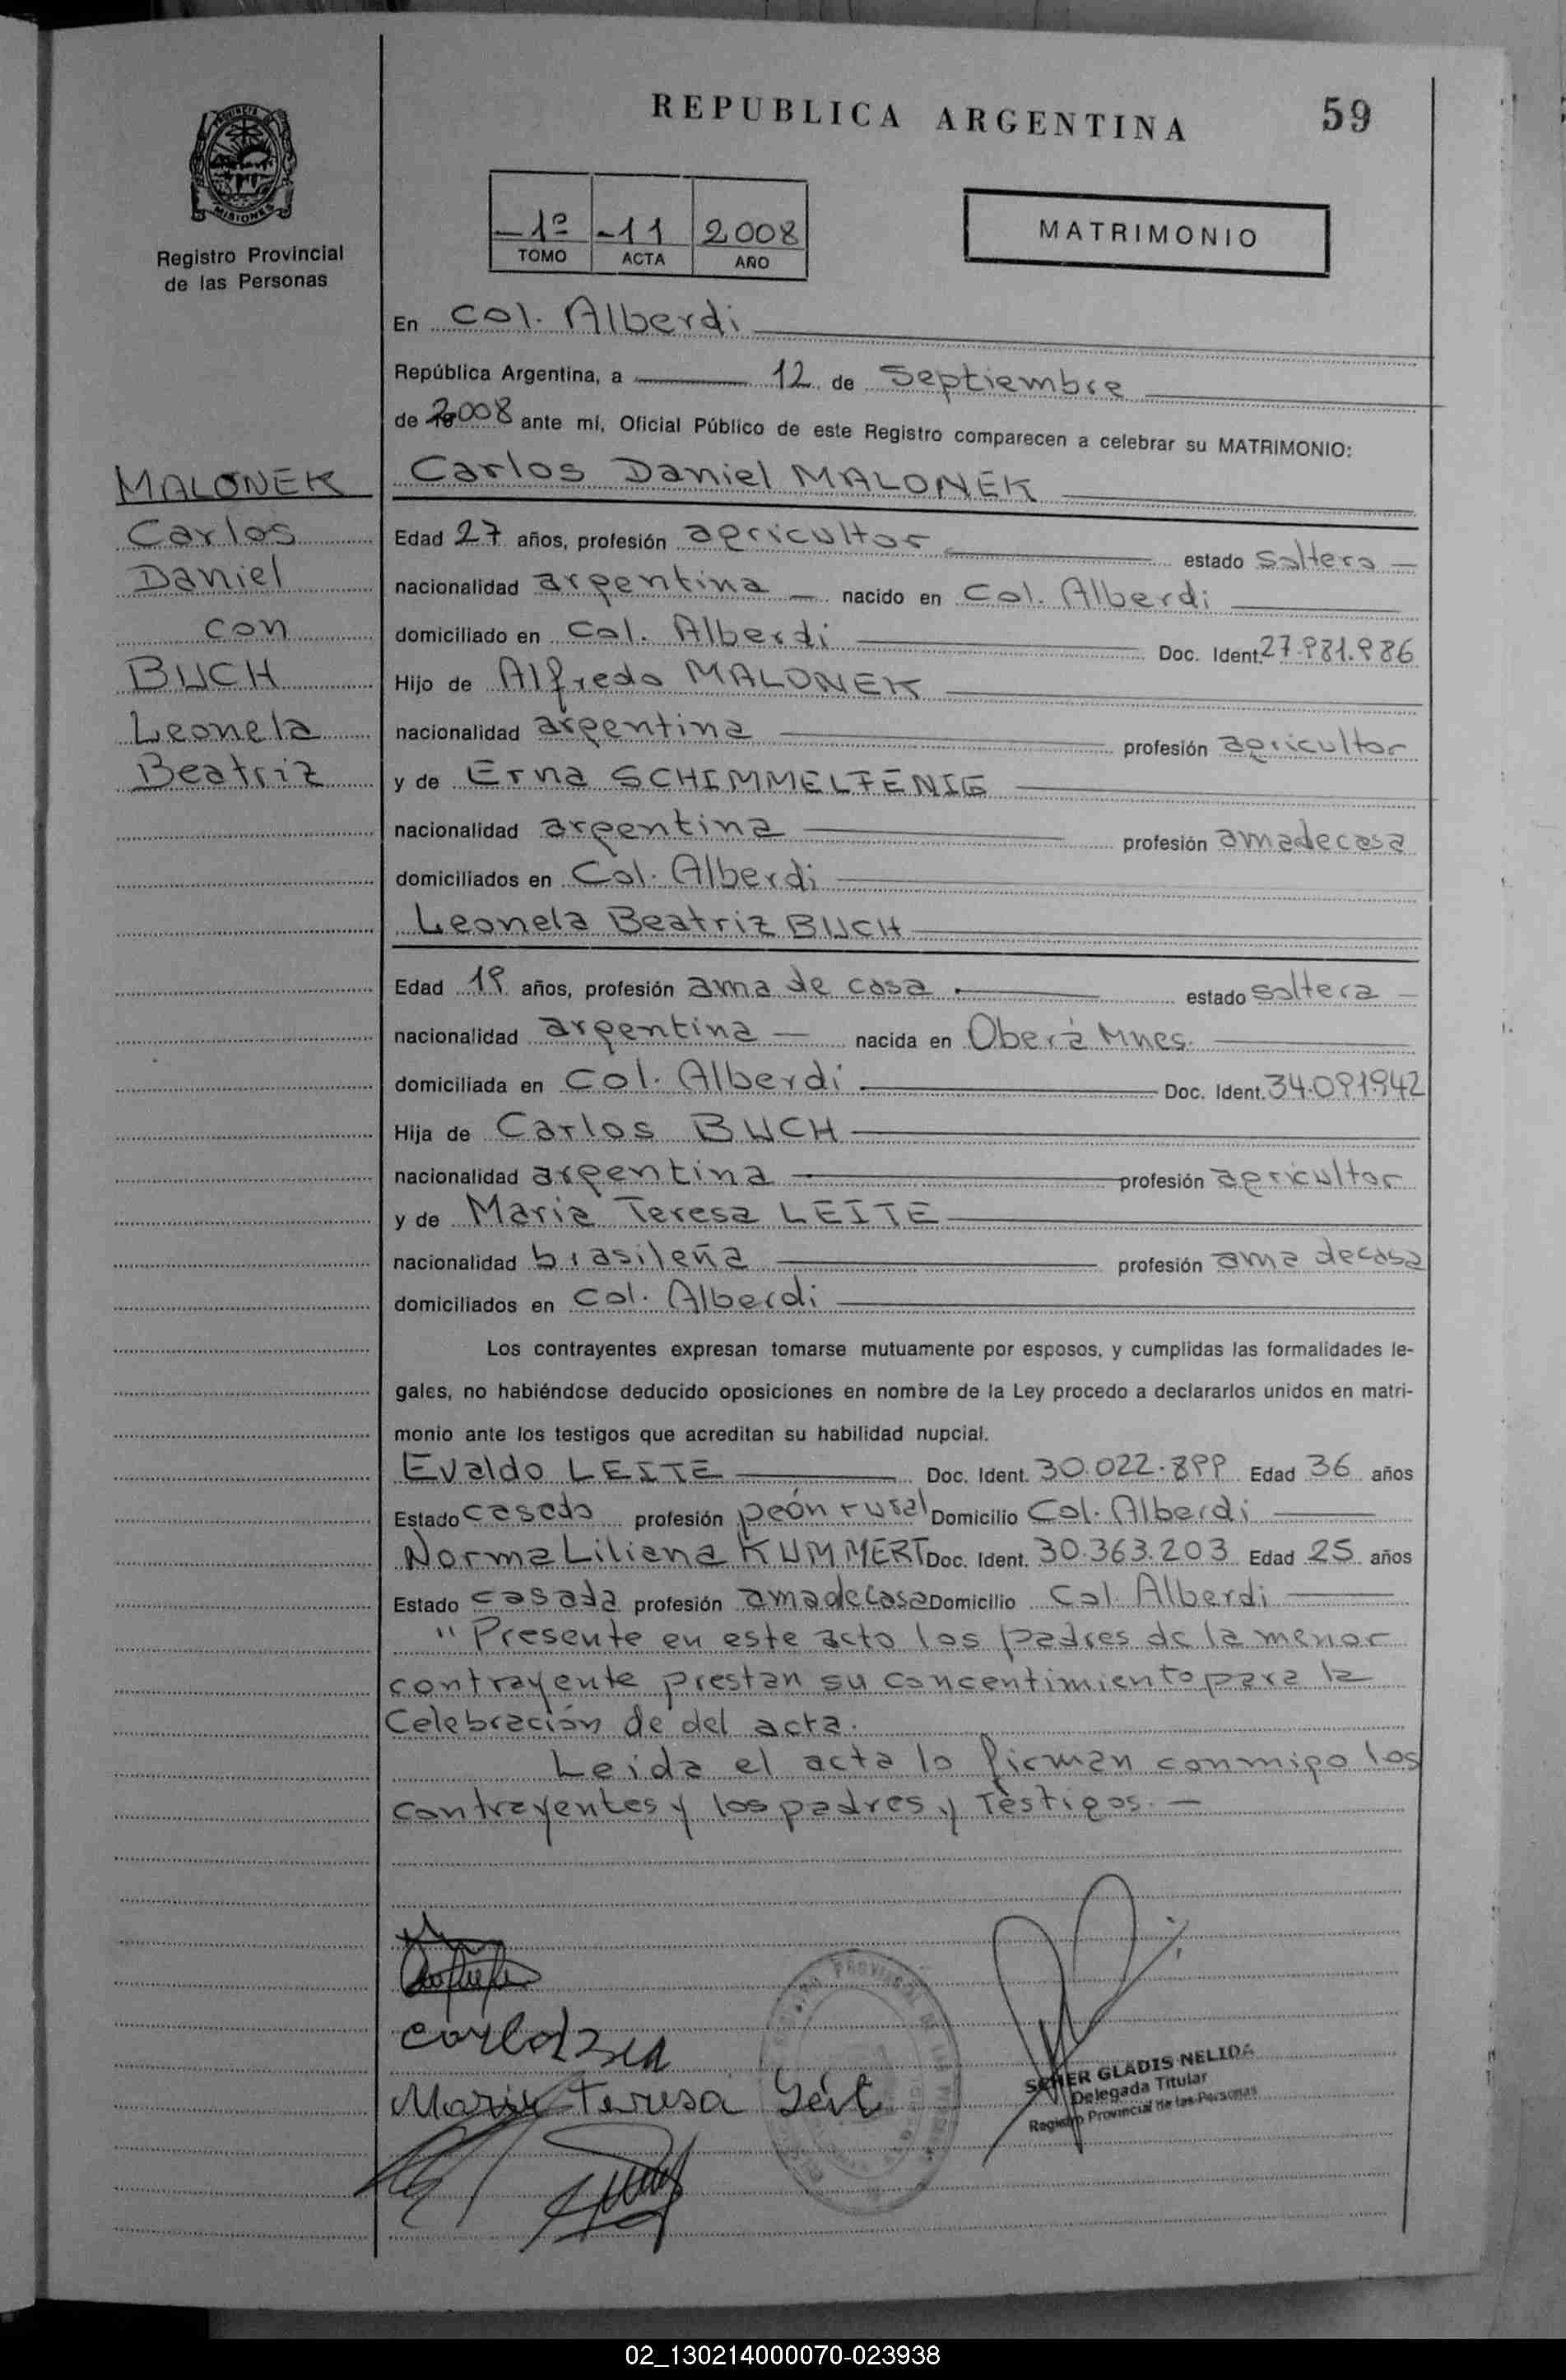 REPUBLICA ARGENTINA
59
PROVINCIA DE
MISIONES
Registro Provincial
de las Personas
-1º -11 2008
TOMO ACTA AÑO
MATRIMONIO
En Col. Alberdi
República Argentina, a 12 de Septiembre
de 2008 ante mí, Oficial Público de este Registro comparecen a celebrar su MATRIMONIO:
MALONEK
Carlos
Daniel
con
BUCH
Leonela
Beatriz
Carlos Daniel MALONEK
Edad 27 años, profesión agricultor estado soltero
nacionalidad argentina nacido en Col. Alberdi
domiciliado en Col. Alberdi Doc. Ident. 27.981.986
Hijo de Alfredo MALONEK
nacionalidad argentina profesión agricultor
y de Erna SCHIMMELFENIG
nacionalidad argentina profesión amadecasa
domiciliados en Col. Alberdi
Leonela Beatriz BUCH
Edad 19 años, profesión ama de casa estado soltera
nacionalidad argentina nacida en Oberá Mnes.
domiciliada en Col. Alberdi Doc. Ident. 34.091942
Hija de Carlos BUCH
nacionalidad argentina profesión agricultor
y de Maria Teresa LEITE
nacionalidad brasileña profesión ama decasa
domiciliados en Col. Alberdi
Los contrayentes expresan tomarse mutuamente por esposos, y cumplidas las formalidades le-
gales, no habiéndose deducido oposiciones en nombre de la Ley procedo a declararlos unidos en matri-
monio ante los testigos que acreditan su habilidad nupcial.
Evaldo LEITE Doc. Ident. 30.022.899 Edad 36 años
Estado casado profesión peón rural Domicilio Col. Alberdi
Norma Liliana KUMMERT Doc. Ident. 30.363.203 Edad 25 años
Estado casada profesión amadecasa Domicilio Col. Alberdi
"Presente en este acto los padres de la menor
contrayente prestan su concentimiento para la
Celebración de del acta.
Leida el acta lo firman conmigo los
contrayentes y los padres y Testigos.-
Maria Teresa
SCHER GLADIS NELIDA
Delegada Titular
Registro Provincial de las Personas
02_130214000070-023938